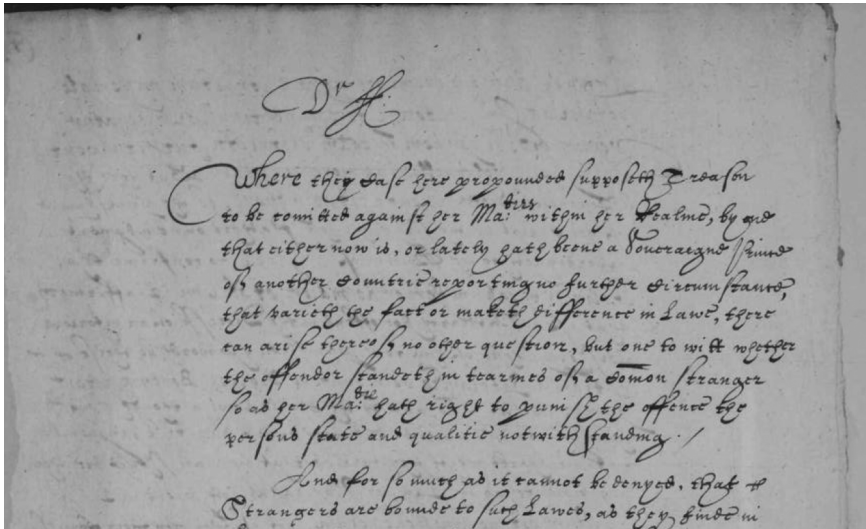 Dr ff:
Where they case here propounded supposeth Treason
to be comitted against her Ma:ties within her Realme, by one
that either now is, or lately hath beene a Soveraigne Prince
of another Countrie reporting no further circumstance,
that varieth the fact or maketh difference in Lawe, there
can arise thereof no other question, but one to witt whether
the offendor standeth in tearmes of a comon stranger
so as her Ma:tie hath right to punish the offence the
persons state and qualitie notwithstanding./
And for so much as it cannot be denyed, that
Strangers are bounde to such Lawes, as they finde in